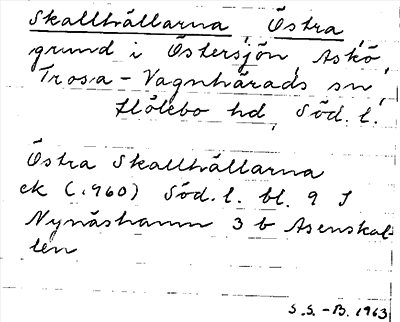 Skallhällarna, Östra,
grund i Östersjön, Askö,
Trosa-Vagnhärads sn,
Hölebo hd, Söd. l.
Östra Skallhällarna
ek (1960) Söd. l. bl. 9 J
Nynäshamn 3 b Asenskal-
len
S.S.-B. 1963